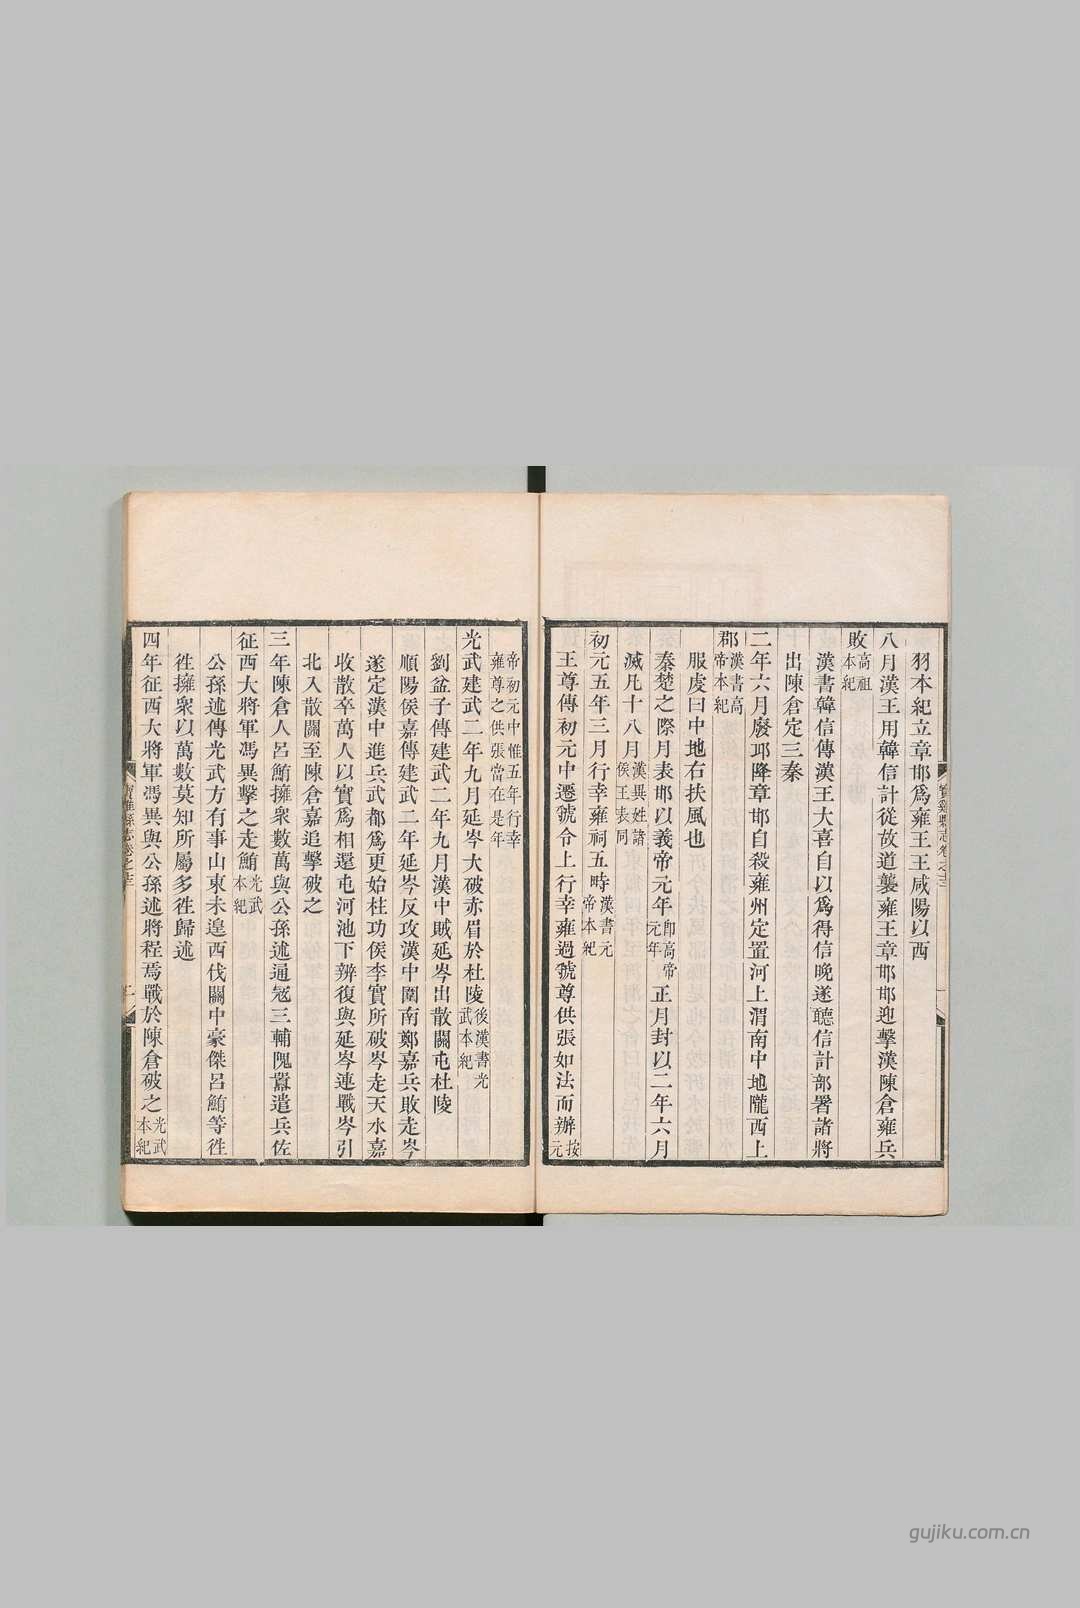 羽本紀立章邯爲雍王王咸陽以西
八月漢王用韓信計從故道襲雍王章邯邯迎擊漢陳倉雍兵
敗高祖本紀
漢書韓信傳漢王大喜自以爲得信晚遂聽信計部署諸將
出陳倉定三秦
二年六月廢邱降章邯自殺雍州定置河上渭南中地隴西上
郡漢書高帝本紀
服虔曰中地右扶風也
秦楚之際月表邯以義帝元年卽高帝元年正月封以二年六月
滅凡十八月漢異姓諸侯王表同
初元五年三月行幸雍祠五畤漢書元帝本紀
王尊傳初元中遷虢令上行幸雍過虢尊供張如法而辦按元
帝初元中惟五年行幸雍尊之供張當在是年
光武建武二年九月延岑大破赤眉於杜陵後漢書光武本紀
劉盆子傳建武二年九月漢中賊延岑出散關屯杜陵
順陽侯嘉傳建武二年延岑反攻漢中圍南鄭嘉兵敗走岑
遂定漢中進兵武都爲更始柱功侯李寶所破岑走天水嘉
收散卒萬人以寶爲相還屯河池下辨復與延岑連戰岑引
北入散關至陳倉嘉追擊破之
三年陳倉人呂鮪擁衆數萬與公孫述通寇三輔隗囂遣兵佐
征西大將軍馮異擊之走鮪光武本紀
公孫述傳光武方有事山東未遑西伐關中豪傑呂鮪等徃
徃擁衆以萬數莫知所屬多徃歸述
四年征西大將軍馮異與公孫述將程焉戰於陳倉破之光武本紀
寶雞縣志卷之
gujiku.com.cn